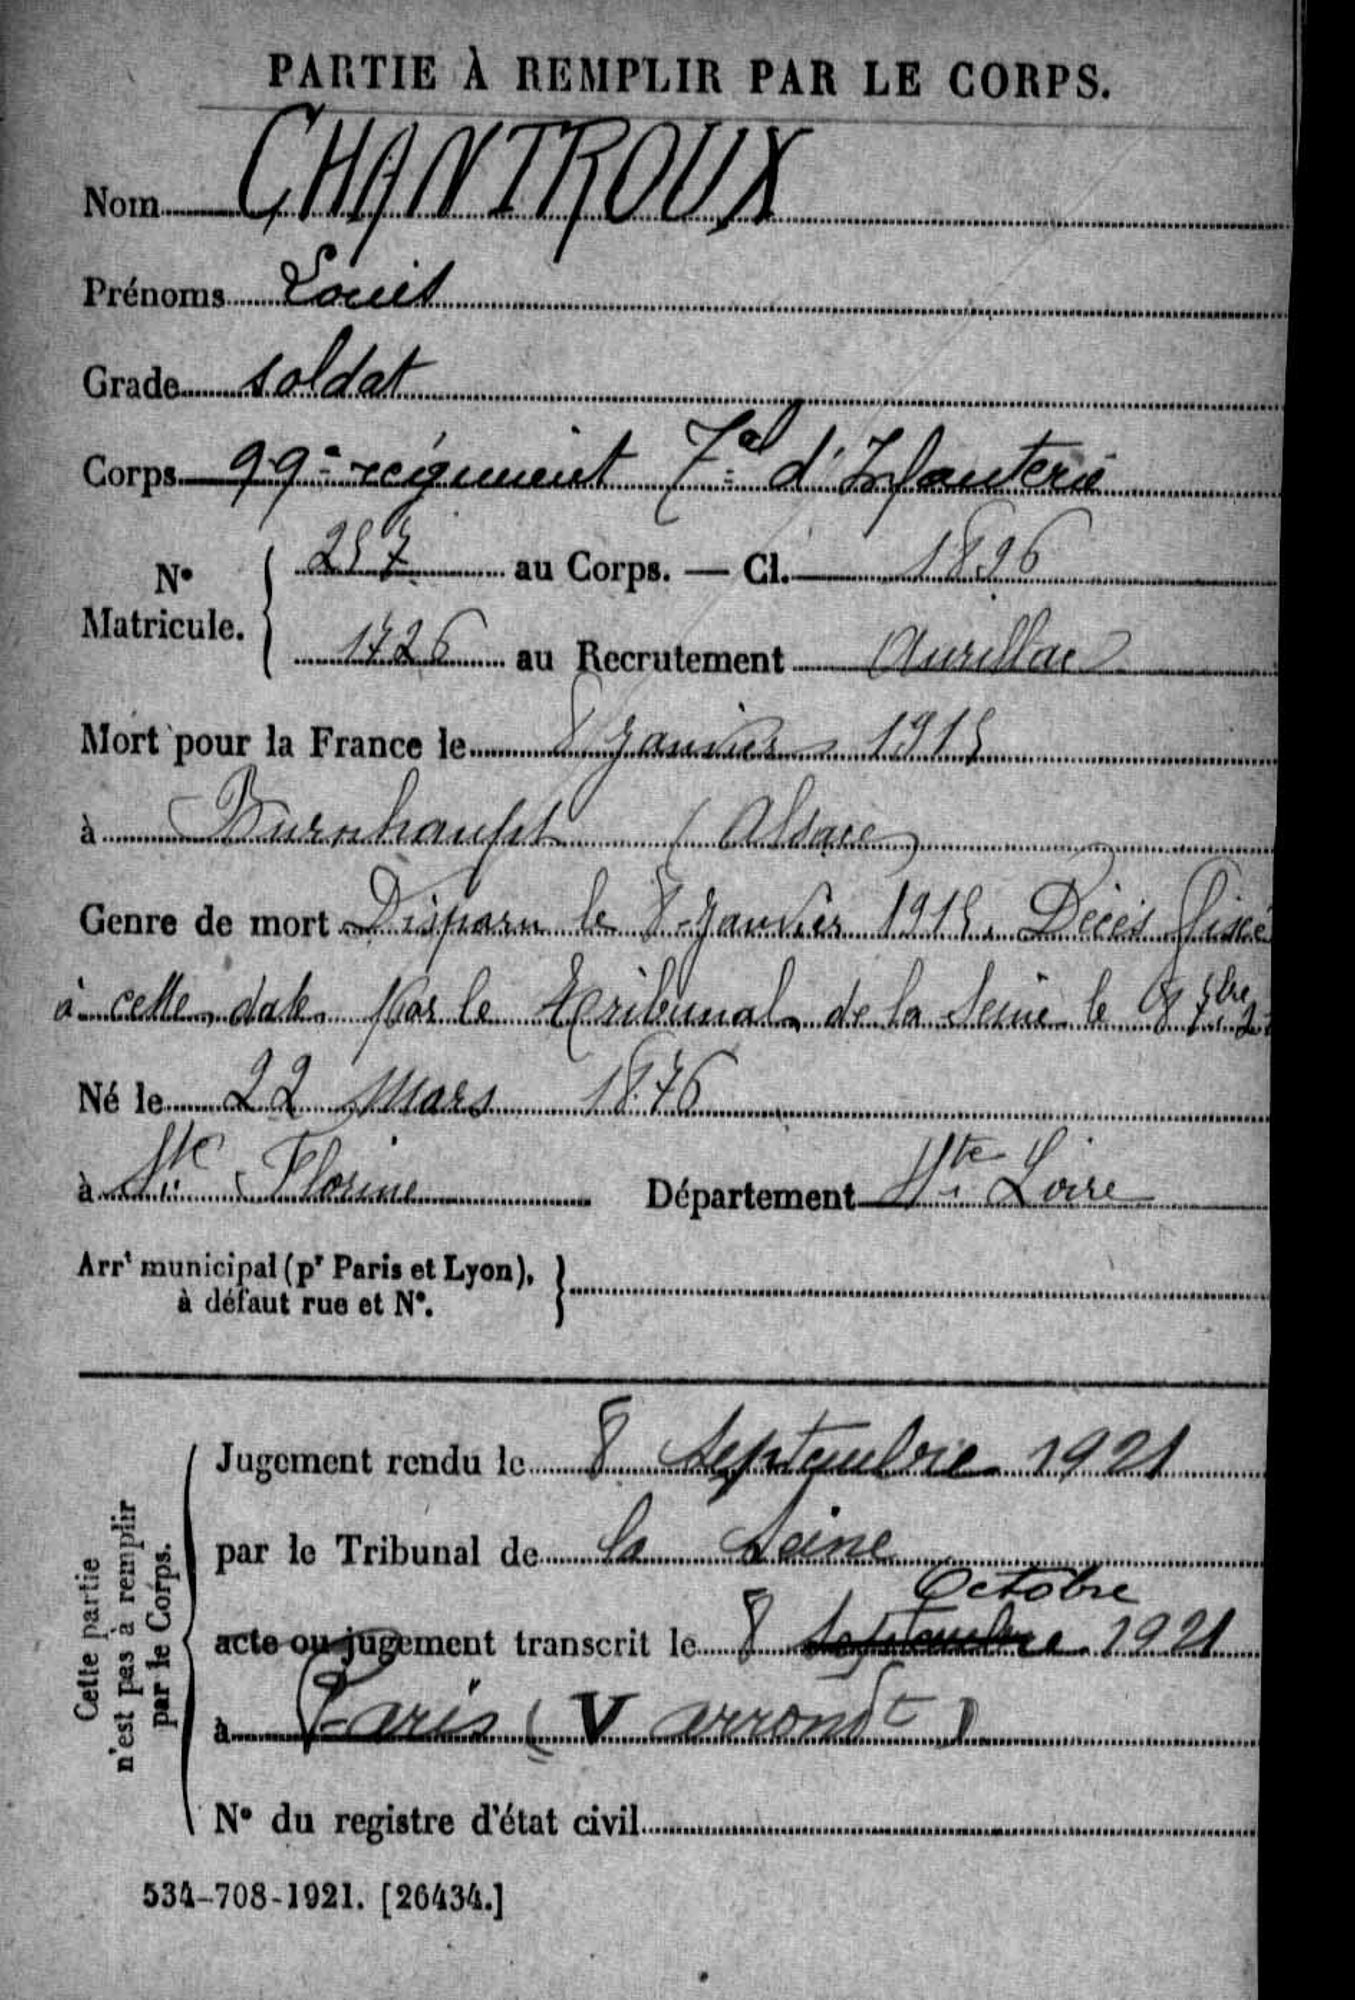 PARTIE À REMPLIR PAR LE CORPS.
Nom CHANTROUX
Prénoms Louis
Grade soldat
Corps 99e régiment Tal d'Infanterie
N° Matricule. 257 au Corps. — Cl. 1896
1726 au Recrutement Aurillac
Mort pour la France le 8 Janvier 1915
à Burnhaupt (Alsace)
Genre de mort Disparu le 8 Janvier 1915. Décès fixé
à cette date par le tribunal de la Seine le 8 7bre 21
Né le 22 Mars 1876
à Ste Florine Département Hte Loire
Arrt municipal (pr Paris et Lyon),
à défaut rue et N°.
Cette partie
n'est pas à remplir
par le Corps.
Jugement rendu le 8 Septembre 1921
par le Tribunal de la Seine
Octobre
acte ou jugement transcrit le 8 Septembre 1921
à Paris (V arrondt)
N° du registre d'état civil
534-708-1921. [26434.]